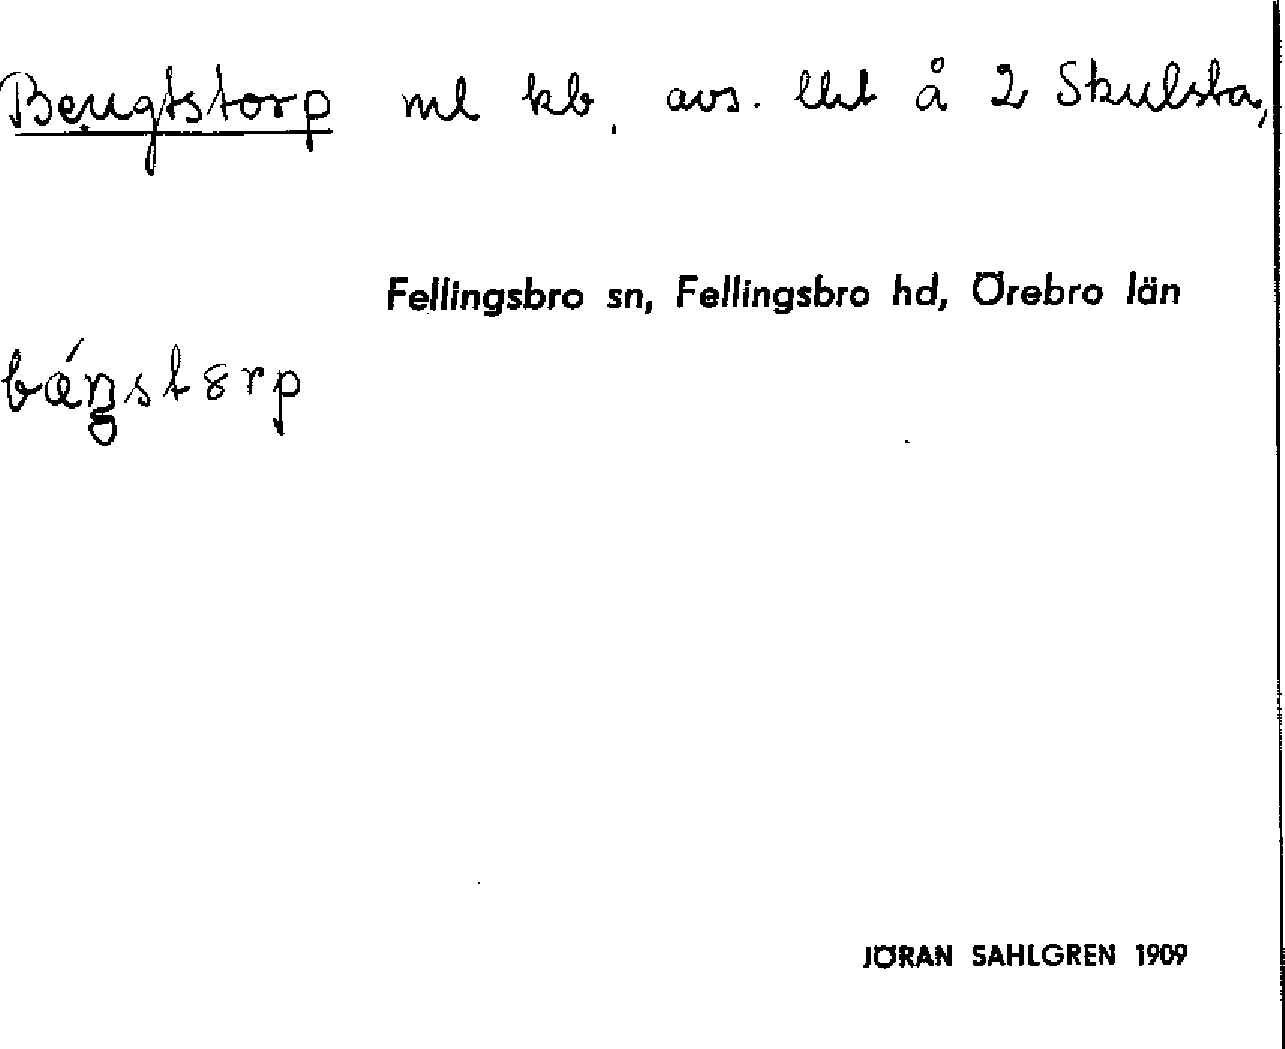 Bengtstorp ml kb. avs. lht å 2 Skulsta,
Fellingsbro sn, Fellingsbro hd, Örebro län
bæ´ŋstȣrp
JÖRAN SAHLGREN 1909